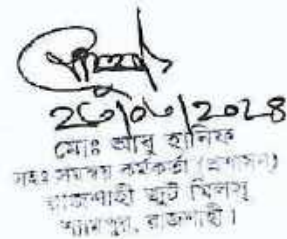 ২৬/০৬/২০২৪
মোঃ আবু হানিফ
সহঃ সমন্বয় কর্মকর্তা (প্রশাসন)
রাজশাহী জুট মিলস্
শ্যামপুর, রাজশাহী।